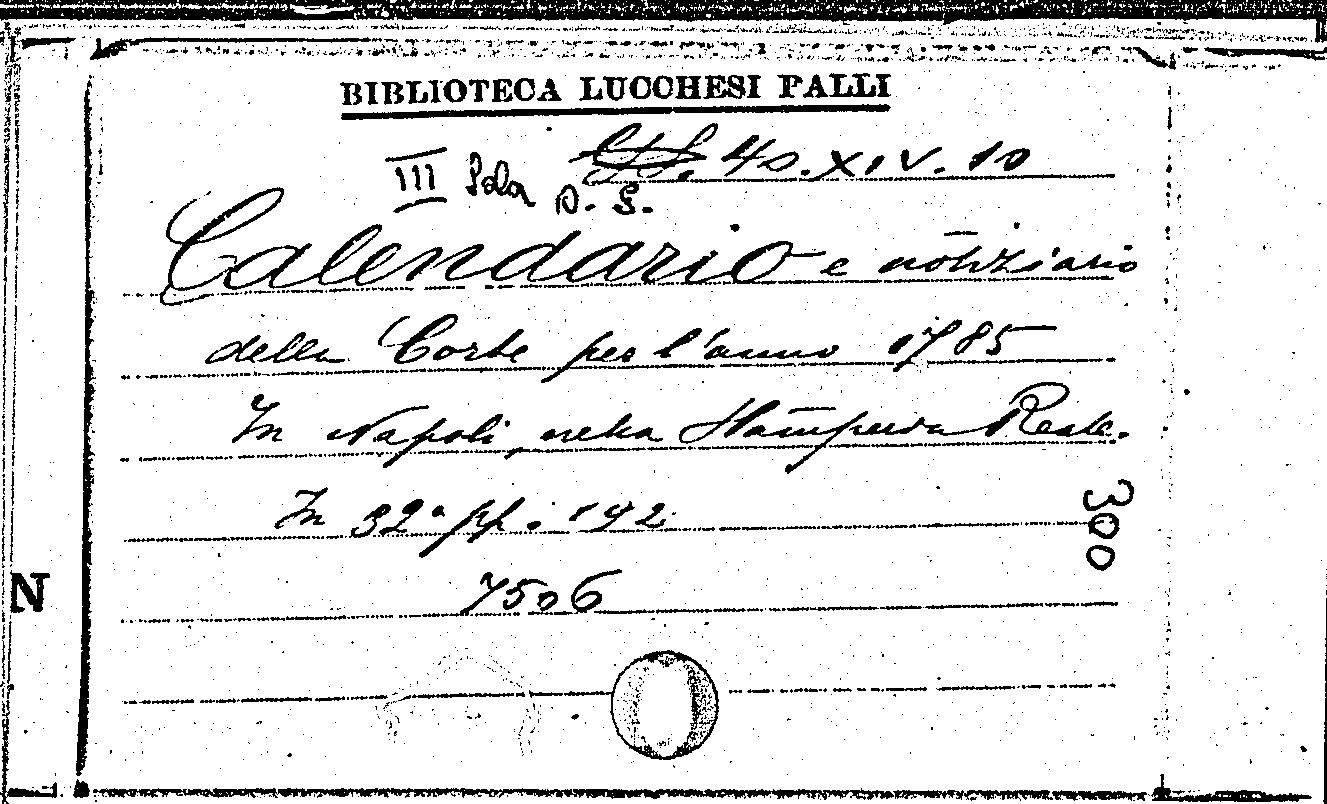 BIBLIOTECA LUCCHESI PALLI
40. XIV. 10
III Sala D. S.
Calendario e notiziario
della Corte per l'anno 1785
In Napoli, nella Stamperia Reale.
In 32° pp. 192
300
7506
N